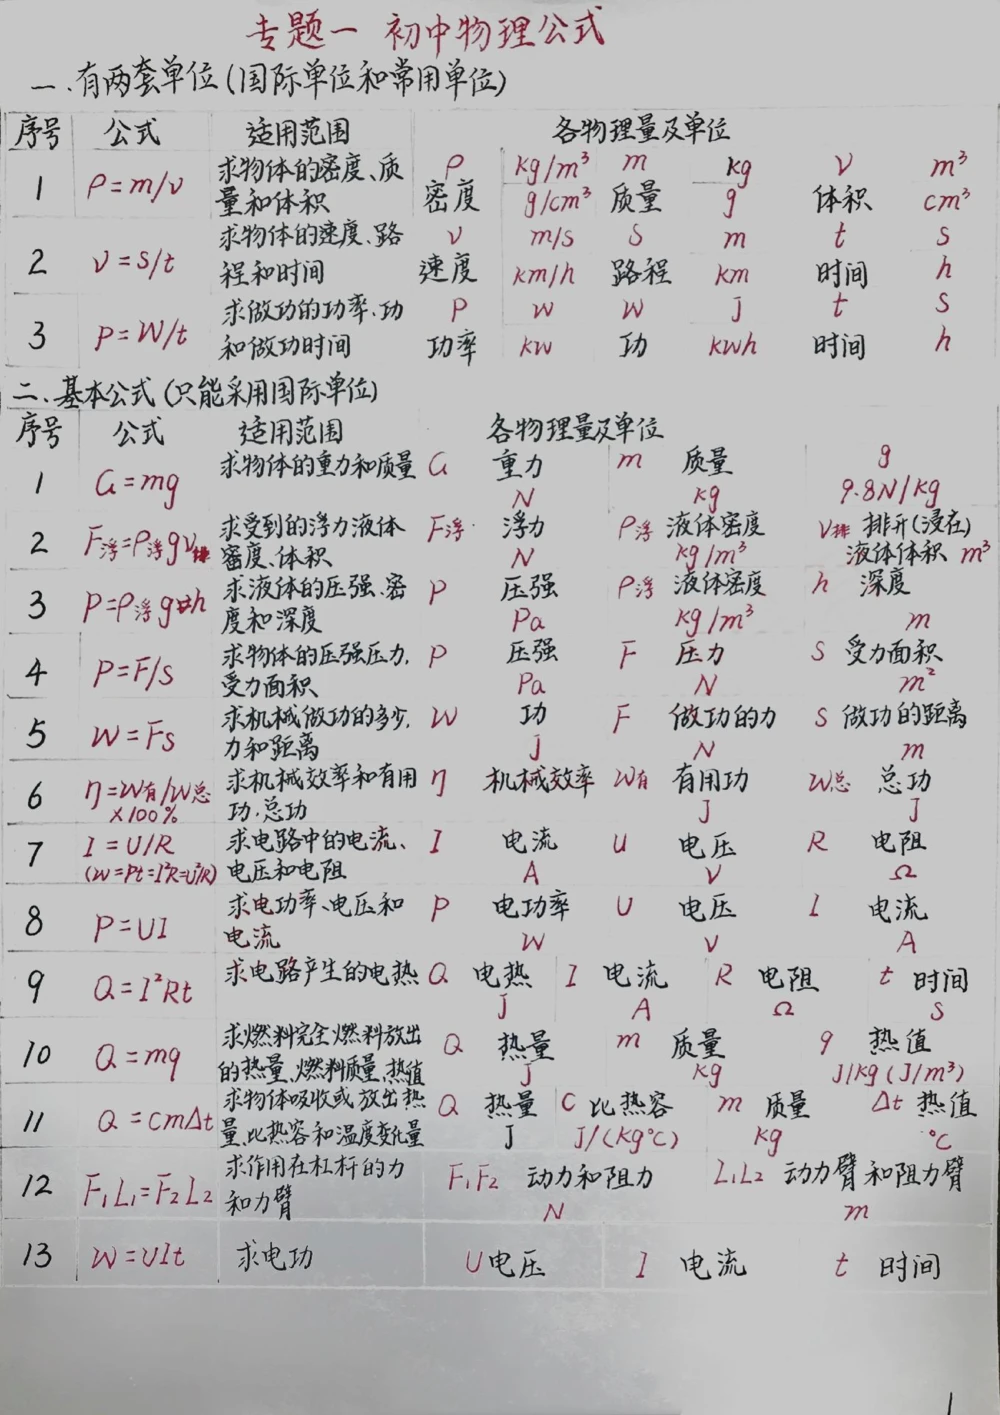 专题一 初中物理公式
一.有两套单位(国际单位和常用单位)
序号 公式 适用范围 各物理量及单位
1 ρ=m/v 求物体的密度、质 ρ kg/m³ m kg v m³
量和体积 密度 g/cm³ 质量 g 体积 cm³
2 v=s/t 求物体的速度、路 v m/s S m t s
程和时间 速度 km/h 路程 km 时间 h
3 P=W/t 求做功的功率、功 P w W J t s
和做功时间 功率 kw 功 kwh 时间 h
二.基本公式(只能采用国际单位)
序号 公式 适用范围 各物理量及单位
1 G=mg 求物体的重力和质量 G 重力 m 质量 g
N kg 9.8N/kg
2 F浮=ρ浮gv排 求受到的浮力液体 F浮 浮力 ρ浮 液体密度 v排 排开(浸在)
密度、体积 N kg/m³ 液体体积 m³
3 P=ρ浮gh 求液体的压强、密 P 压强 ρ浮 液体密度 h 深度
度和深度 Pa kg/m³ m
4 P=F/S 求物体的压强压力, P 压强 F 压力 S 受力面积
受力面积 Pa N m²
5 W=Fs 求机械做功的多少, W 功 F 做功的力 S 做功的距离
力和距离 J N m
6 η=W有/W总 求机械效率和有用 η 机械效率 W有 有用功 W总 总功
×100% 功.总功 J J
7 I=U/R 求电路中的电流、 I 电流 U 电压 R 电阻
(W=Pt=I²R=U²/R) 电压和电阻 A V Ω
8 P=UI 求电功率、电压和 P 电功率 U 电压 I 电流
电流 W V A
9 Q=I²Rt 求电路产生的电热 Q 电热 I 电流 R 电阻 t 时间
J A Ω S
10 Q=mq 求燃料完全燃料放出 Q 热量 m 质量 q 热值
的热量、燃料质量、热值 J kg J/kg(J/m³)
11 Q=cmΔt 求物体吸收或放出热 Q 热量 C 比热容 m 质量 Δt 热值
量、比热容和温度变化量 J J/(kg℃) kg ℃
12 F₁L₁=F₂L₂ 求作用在杠杆的力 F₁F₂ 动力和阻力 L₁L₂ 动力臂和阻力臂
和力臂 N m
13 W=UIt 求电功 U电压 I 电流 t 时间
1